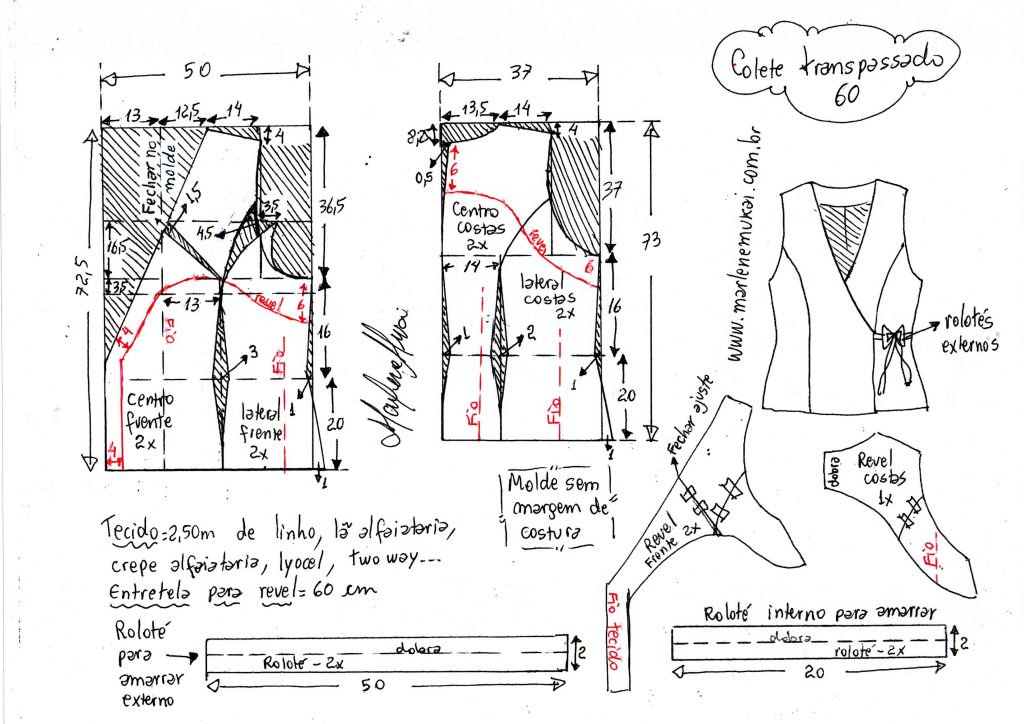 Colete transpassado
60
50
13
12,5
14
4
Fechar no
molde
1,5
4,5
3,5
36,5
16,5
3,5
72,5
13
revel
6
16
4
Fio
Fio
3
1
20
centro
frente
2x
lateral
frente
2x
4
1
37
13,5
14
4
0,5
6
37
73
Centro
costas
2x
revel
14
6
lateral
costas
2x
16
1
2
1
20
Fio
Fio
1
www.marlenemukai.com.br
rolotês
externos
Molde sem
margem de
costura
Fechar ajuste
Revel
Frente 2x
Fio tecido
dobra
Revel
costas
1x
Fio
Tecido=2,50m de linho, lã alfaiataria,
crepe alfaiataria, lyocel, two way...
Entretela para revel=60 cm
Roloté
para
amarrar
externo
dobra
Roloté-2x
2
50
Roloté interno para amarrar
dobra
roloté-2x
2
20